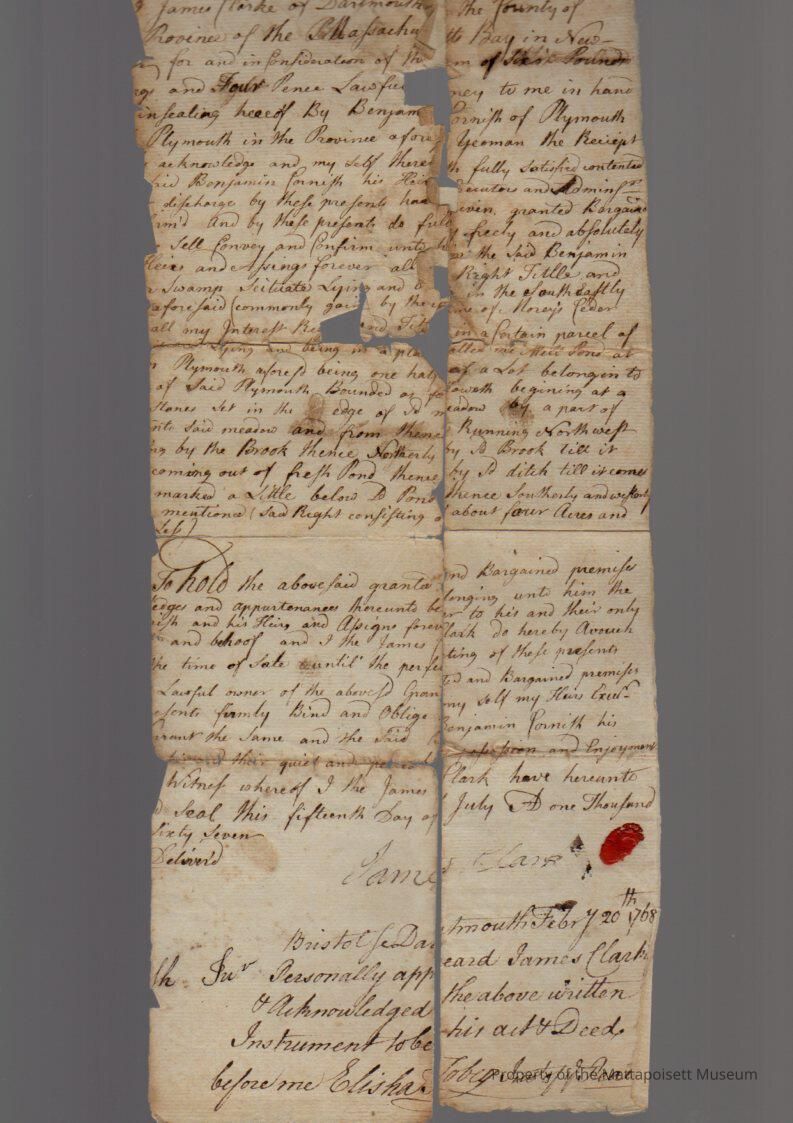 James Clarke of Dartmouth the County of
Province of the Massachu tts Bay in New-
for and in Consideration of th m of Six Pounds
and Four Pence Lawfu ney to me in hand
insealing hereof By Benjam Cornish of Plymouth
Plymouth in the Province afore Yeoman the Receipt
acknowledge and my self there fully satisfied contented
aid Benjamin Cornish his Heir Executors and Admin
discharge by these presents hav given, granted Bargain
irm'd and by these presents do full y freely and absolutely
Sell Convey and Confirm unto the said Benjamin
Heirs and Assings forever all Right Titlle and
Swamp Scituate Lying and b in the Southeastly
aforesaid (commonly by the of Moreys Ceder
all my Interest Re and Titl in a Certain parcel of
Lying and being in a pla alled Pond at
Plymouth afores'd being one half of a Lot belongin to
of Said Plymouth Bounded as fo loweth begining at a
Stones Set in the edge of s'd m eadow by a part of
nto said meadow and from thenc Running Northwest
ng by the Brook thence Northerly by s'd Brook till it
coming out of fresh Pond thence by s'd ditch till it comes
marked a Little below s'd Pond thence Southerly and westerly
mentioned (said Right consisting o about four Acres and
Less)
To hold the abovesaid granted nd Bargained premises
edges and appurtenances thereunto be longing unto him the
ish and his Heirs and Assigns forev er to his and their only
and behoof and I the James Clark do hereby Avouch
the time of Sale & until the perfe cting of these presents
Lawful owner of the aboves'd Gran ted and Bargained premises
esents firmly Bind and Oblige my self my Heirs Execrs
rrant the Same and the Said Benjamin Cornish his
their quiet and ossession and Enjoyment
Witness whereof I the James Clark have hereunto
d Seal this fifteenth Day of July AD one Thousand
Sixty Seven
Deliver'd
James Clark
Bristol Ss Dartmouth Febry 20th 1768
Personally appeard James Clark
& Acknowledged the above written
Instrument to be his act & Deed
before me Elisha Tobey Just of Peace
Property of the Mattapoisett Museum